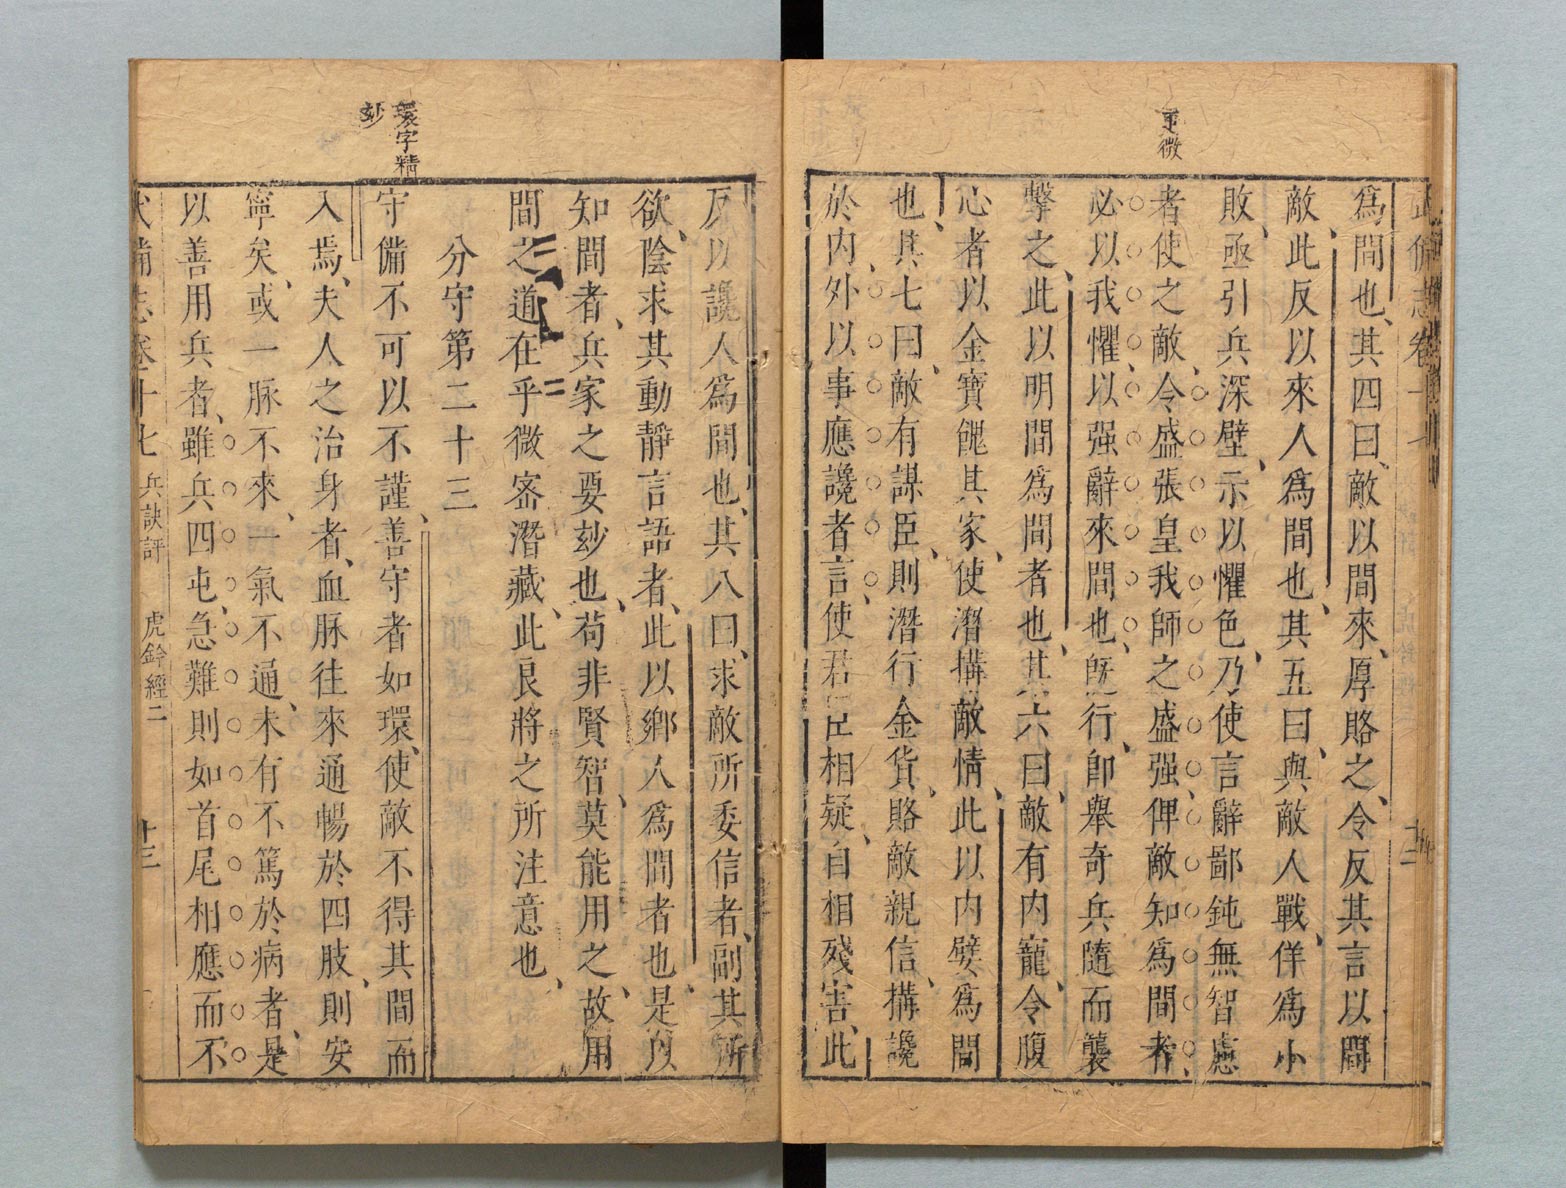 更微
爲間也其四曰敵以間來厚賂之令反其言以間
敵此反以來人爲間也其五曰與敵人戰佯爲小
敗亟引兵深壁示以懼色乃使言辭鄙鈍無智慮
者使之敵令盛張皇我師之盛强俾敵知爲間者
必以我懼以强辭來間也旣行卽舉奇兵隨而襲
擊之此以明間爲間者也其六曰敵有内寵令腹
心者以金寶餽其家使潛搆敵情此以内嬖爲間
也其七曰敵有謀臣則潛行金貨賂敵親信搆讒
於内外以事應讒者言使君臣相疑自相殘害此
反以讒人爲間也其八曰求敵所委信者副其所
欲陰求其動靜言語者此以鄉人爲間者也是以
知間者兵家之要玅也苟非賢智莫能用之故用
間之道在乎微宻潛藏此良將之所注意也
分守第二十三
環字精
玅
守備不可以不謹善守者如環使敵不得其間而
入焉夫人之治身者血脉往來通暢於四肢則安
寧矣或一脉不來一氣不通未有不篤於病者是
以善用兵者雖兵四屯急難則如首尾相應而不
武備志卷十七 兵訣評 虎鈐經二 十三